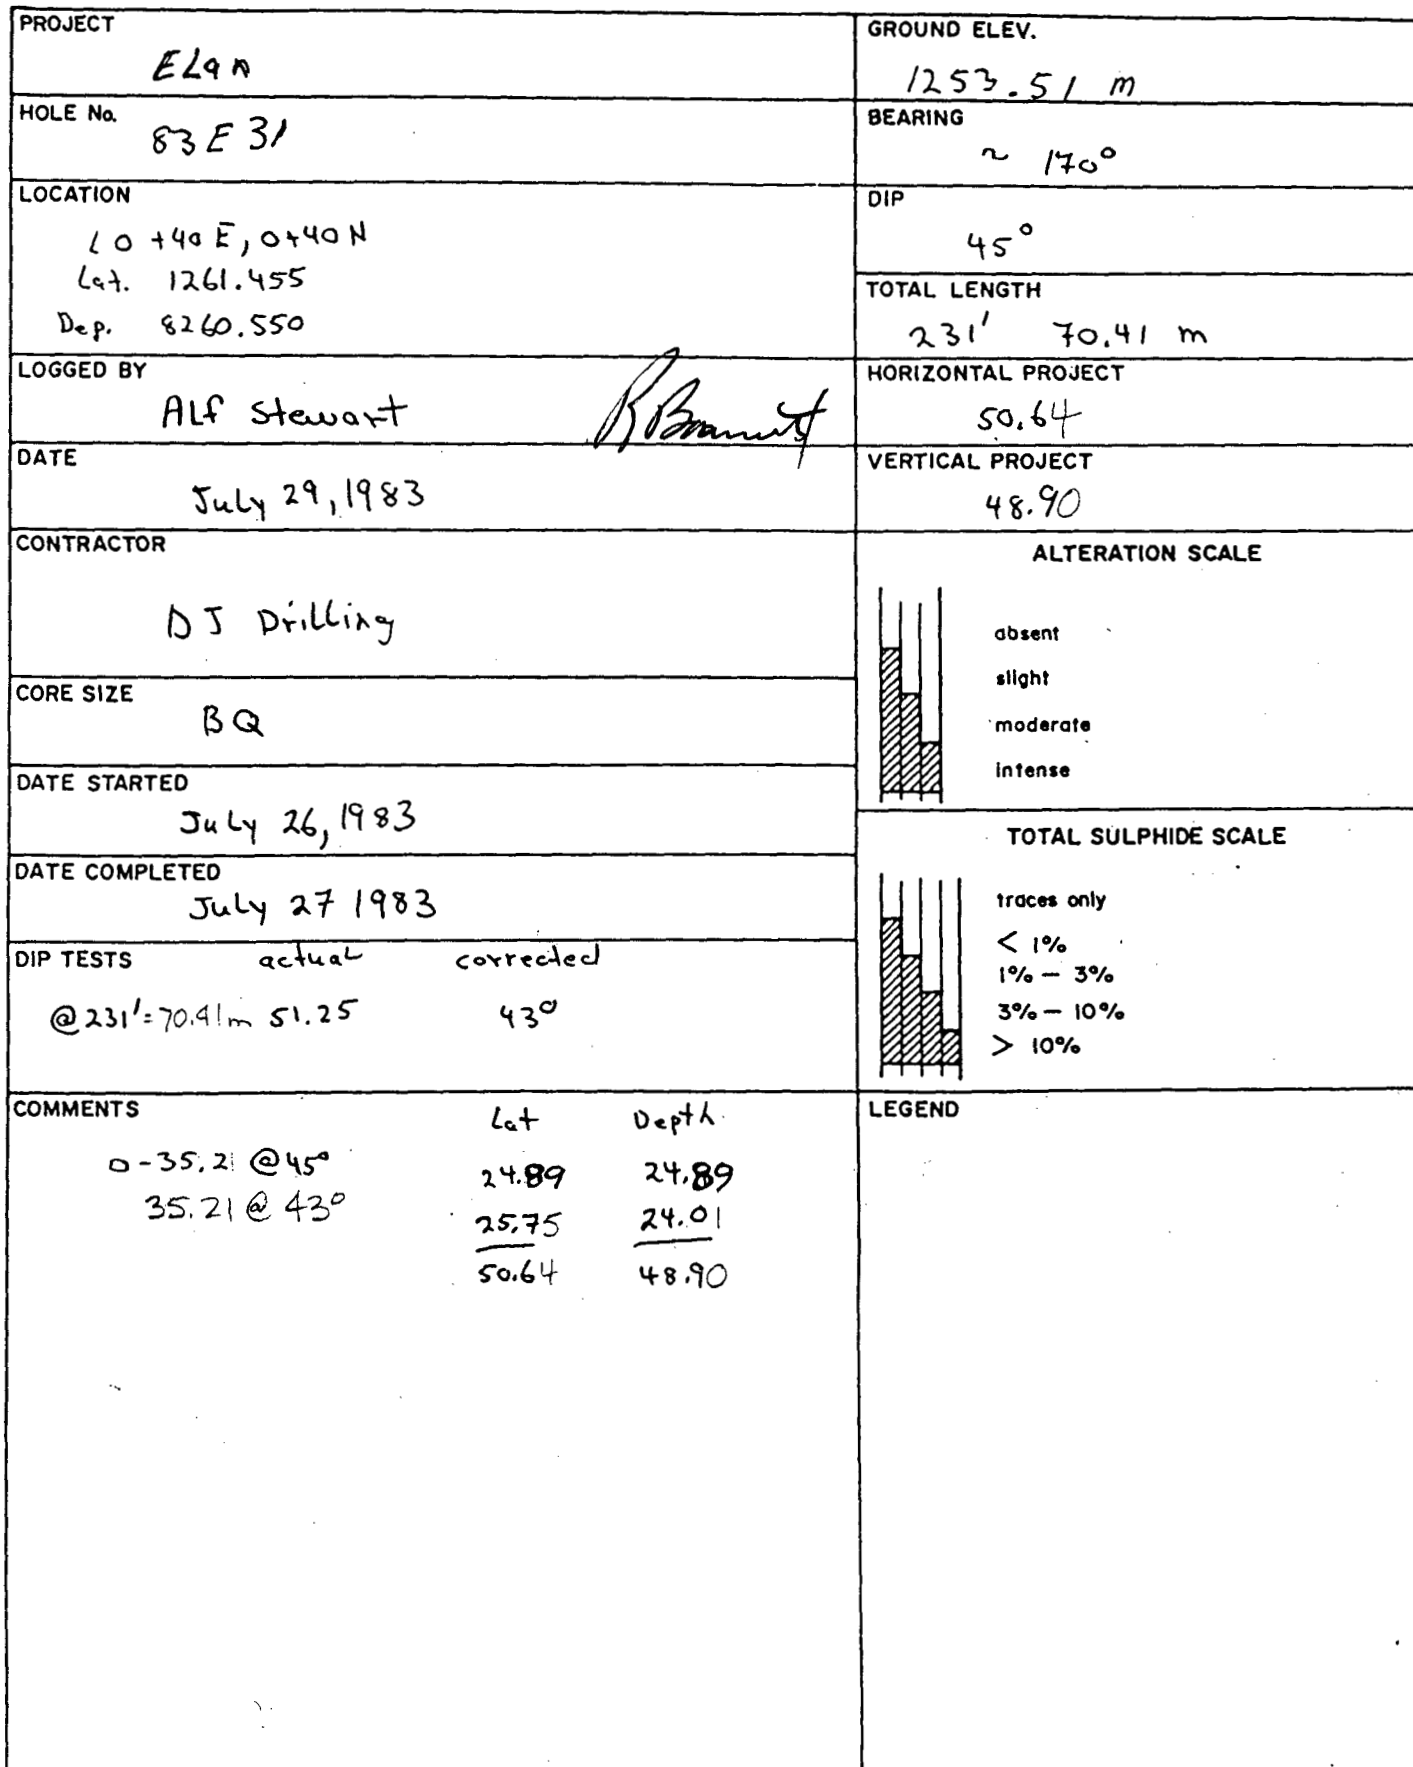 PROJECT
ELan
HOLE No.
83 E 31
LOCATION
L 0 +40 E, 0+40 N
Lat. 1261.455
Dep. 8260.550
LOGGED BY
ALf Stewart
DATE
July 29, 1983
CONTRACTOR
DJ Drilling
CORE SIZE
BQ
DATE STARTED
July 26, 1983
DATE COMPLETED
July 27 1983
DIP TESTS actual corrected
@ 231' = 70.41m 51.25 43°
COMMENTS
Lat Depth
0-35.21 @ 45° 24.89 24.89
35.21 @ 43° 25.75 24.01
50.64 48.90
GROUND ELEV.
1253.51 m
BEARING
~ 170°
DIP
45°
TOTAL LENGTH
231' 70.41 m
HORIZONTAL PROJECT
50.64
VERTICAL PROJECT
48.90
ALTERATION SCALE
absent
slight
moderate
intense
TOTAL SULPHIDE SCALE
traces only
< 1%
1% — 3%
3% — 10%
> 10%
LEGEND